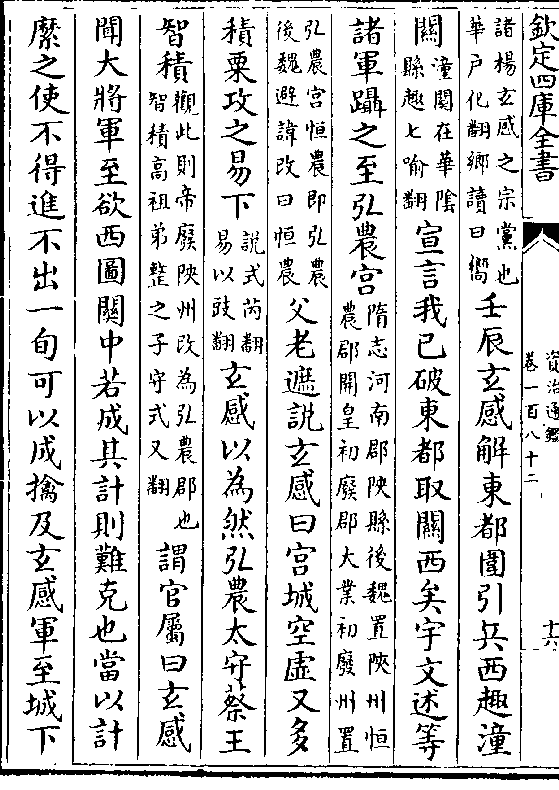 欽定四庫全書
資治通鑑
卷一百八十二
十六
諸楊玄感之宗黨也
華戶化翻鄉讀曰嚮
壬辰玄感解東都圍引兵西趣潼
關
潼關在華隂
縣趣七喻翻
宣言我已破東都取關西矣宇文述等
諸軍躡之至弘農宫
隋志河南郡陜縣後魏置陜州恒
農郡開皇初廢郡大業初廢州置
弘農宫恒農即弘農
後魏避諱改曰恒農
父老遮説玄感曰宫城空虛又多
積粟攻之易下
説式芮翻
易以豉翻
玄感以為然弘農太守蔡王
智積
觀此則帝廢陜州改為弘農郡也
智積高祖弟整之子守式又翻
謂官屬曰玄感
聞大將軍至欲西圖關中若成其計則難克也當以計
縻之使不得進不出一旬可以成擒及玄感軍至城下